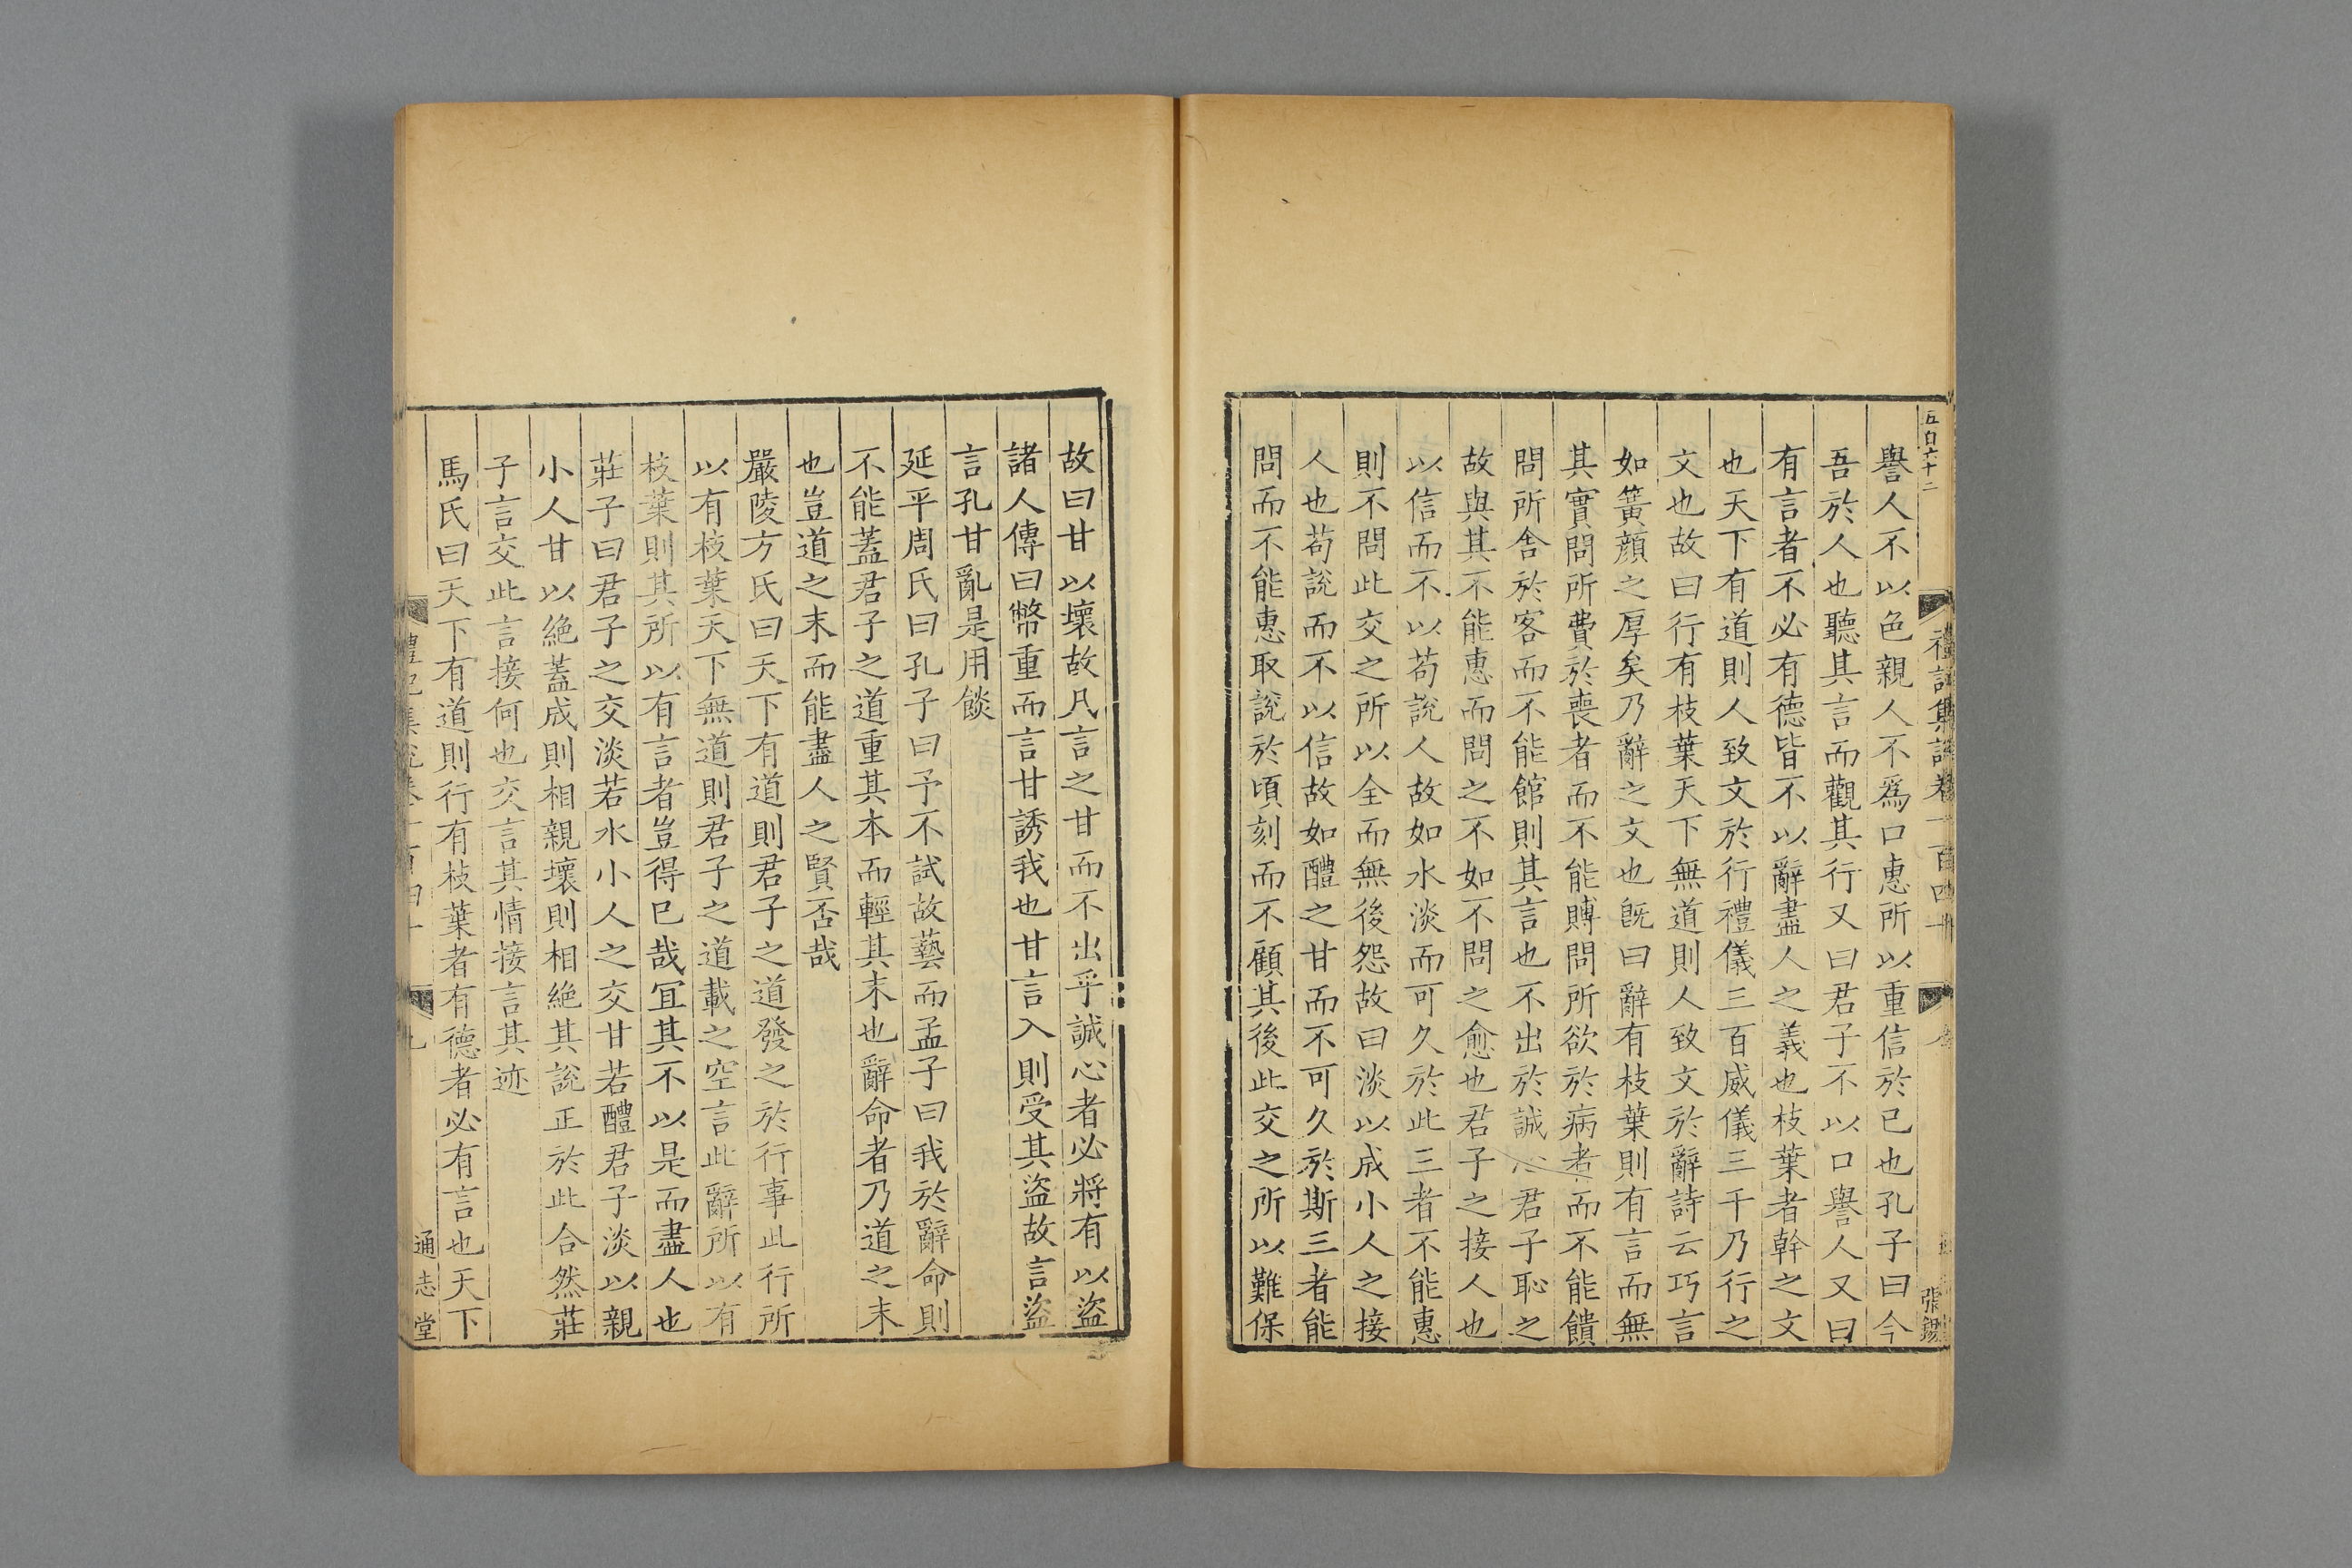 五百六十二
禮記集說卷一百四十
張錫
譽人不以色親人不爲口惠所以重信於已也孔子曰今
吾於人也聽其言而觀其行又曰君子不以口譽人又曰
有言者不必有德皆不以辭盡人之義也枝葉者幹之文
也天下有道則人致文於行禮儀三百威儀三千乃行之
文也故曰行有枝葉天下無道則人致文於辭詩云巧言
如簧顔之厚矣乃辭之文也旣曰辭有枝葉則有言而無
其實問所費於喪者而不能賻問所欲於病者而不能饋
問所舍於客而不能館則其言也不出於誠心君子恥之
故與其不能惠而問之不如不問之愈也君子之接人也
以信而不以苟說人故如水淡而可久於此三者不能惠
則不問此交之所以全而無後怨故曰淡以成小人之接
人也苟說而不以信故如醴之甘而不可久於斯三者能
問而不能惠取說於頃刻而不顧其後此交之所以難保
故曰甘以壞故凡言之甘而不出乎誠心者必將有以盜
諸人傳曰幣重而言甘誘我也甘言入則受其盜故言盜
言孔甘亂是用餤
延平周氏曰孔子曰予不試故藝而孟子曰我於辭命則
不能蓋君子之道重其本而輕其末也辭命者乃道之末
也豈道之末而能盡人之賢否哉
嚴陵方氏曰天下有道則君子之道發之於行事此行所
以有枝葉天下無道則君子之道載之空言此辭所以有
枝葉則其所以有言者豈得已哉宜其不以是而盡人也
莊子曰君子之交淡若水小人之交甘若醴君子淡以親
小人甘以絶蓋成則相親壞則相絶其說正於此合然莊
子言交此言接何也交言其情接言其迹
馬氏曰天下有道則行有枝葉者有德者必有言也天下
禮記集說卷一百四十
九
通志堂